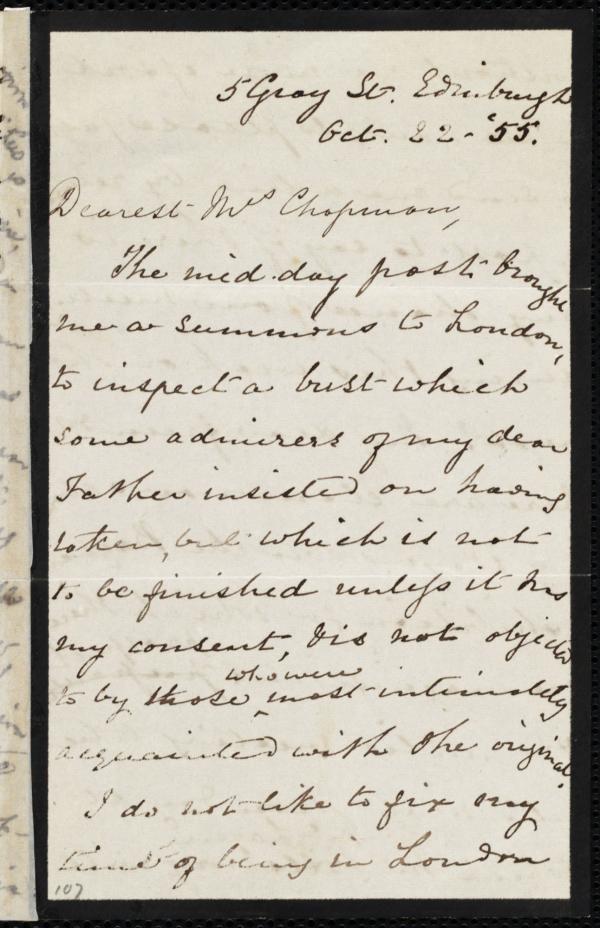 5 Gray St. Edinburgh
Oct. 22 - '55.
Dearest Mrs Chapman,
The mid-day post brought
me a summons to London,
to inspect a bust which
some admirers of my dear
Father insisted on having
taken, but which is not
to be finished unless it has
my consent, & is not objected
to by those who were most intimately
acquainted with the original.
I do not like to fix my
time of being in London
107